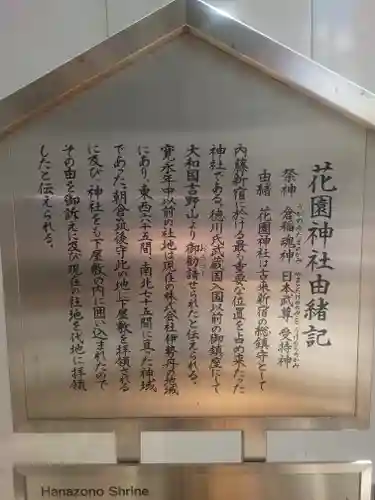 花園神社由緒記
祭神　倉稲魂神　日本武尊　受持神
うかのみたまのかみ　やまとたけるのみこと　うけもちのかみ
由緒　花園神社は古来新宿の総鎮守として
内藤新宿に於ける最も重要な位置を占め来たった
神社である。徳川氏武蔵国入国以前の御鎮座にして
大和国吉野山より御勧請せられたと伝えられる。
寛永年中以前の社地は現在の株式会社伊勢丹の地域
にあり、東西六十五間、南北七十五間に亘った神域
であった。朝倉筑後守此の地に下屋敷を拝領される
に及び、神社をも下屋敷の内に囲い込まれたので
その由を御訴えに及び現在の社地を代地に拝領
したと伝えられる。
Hanazono Shrine